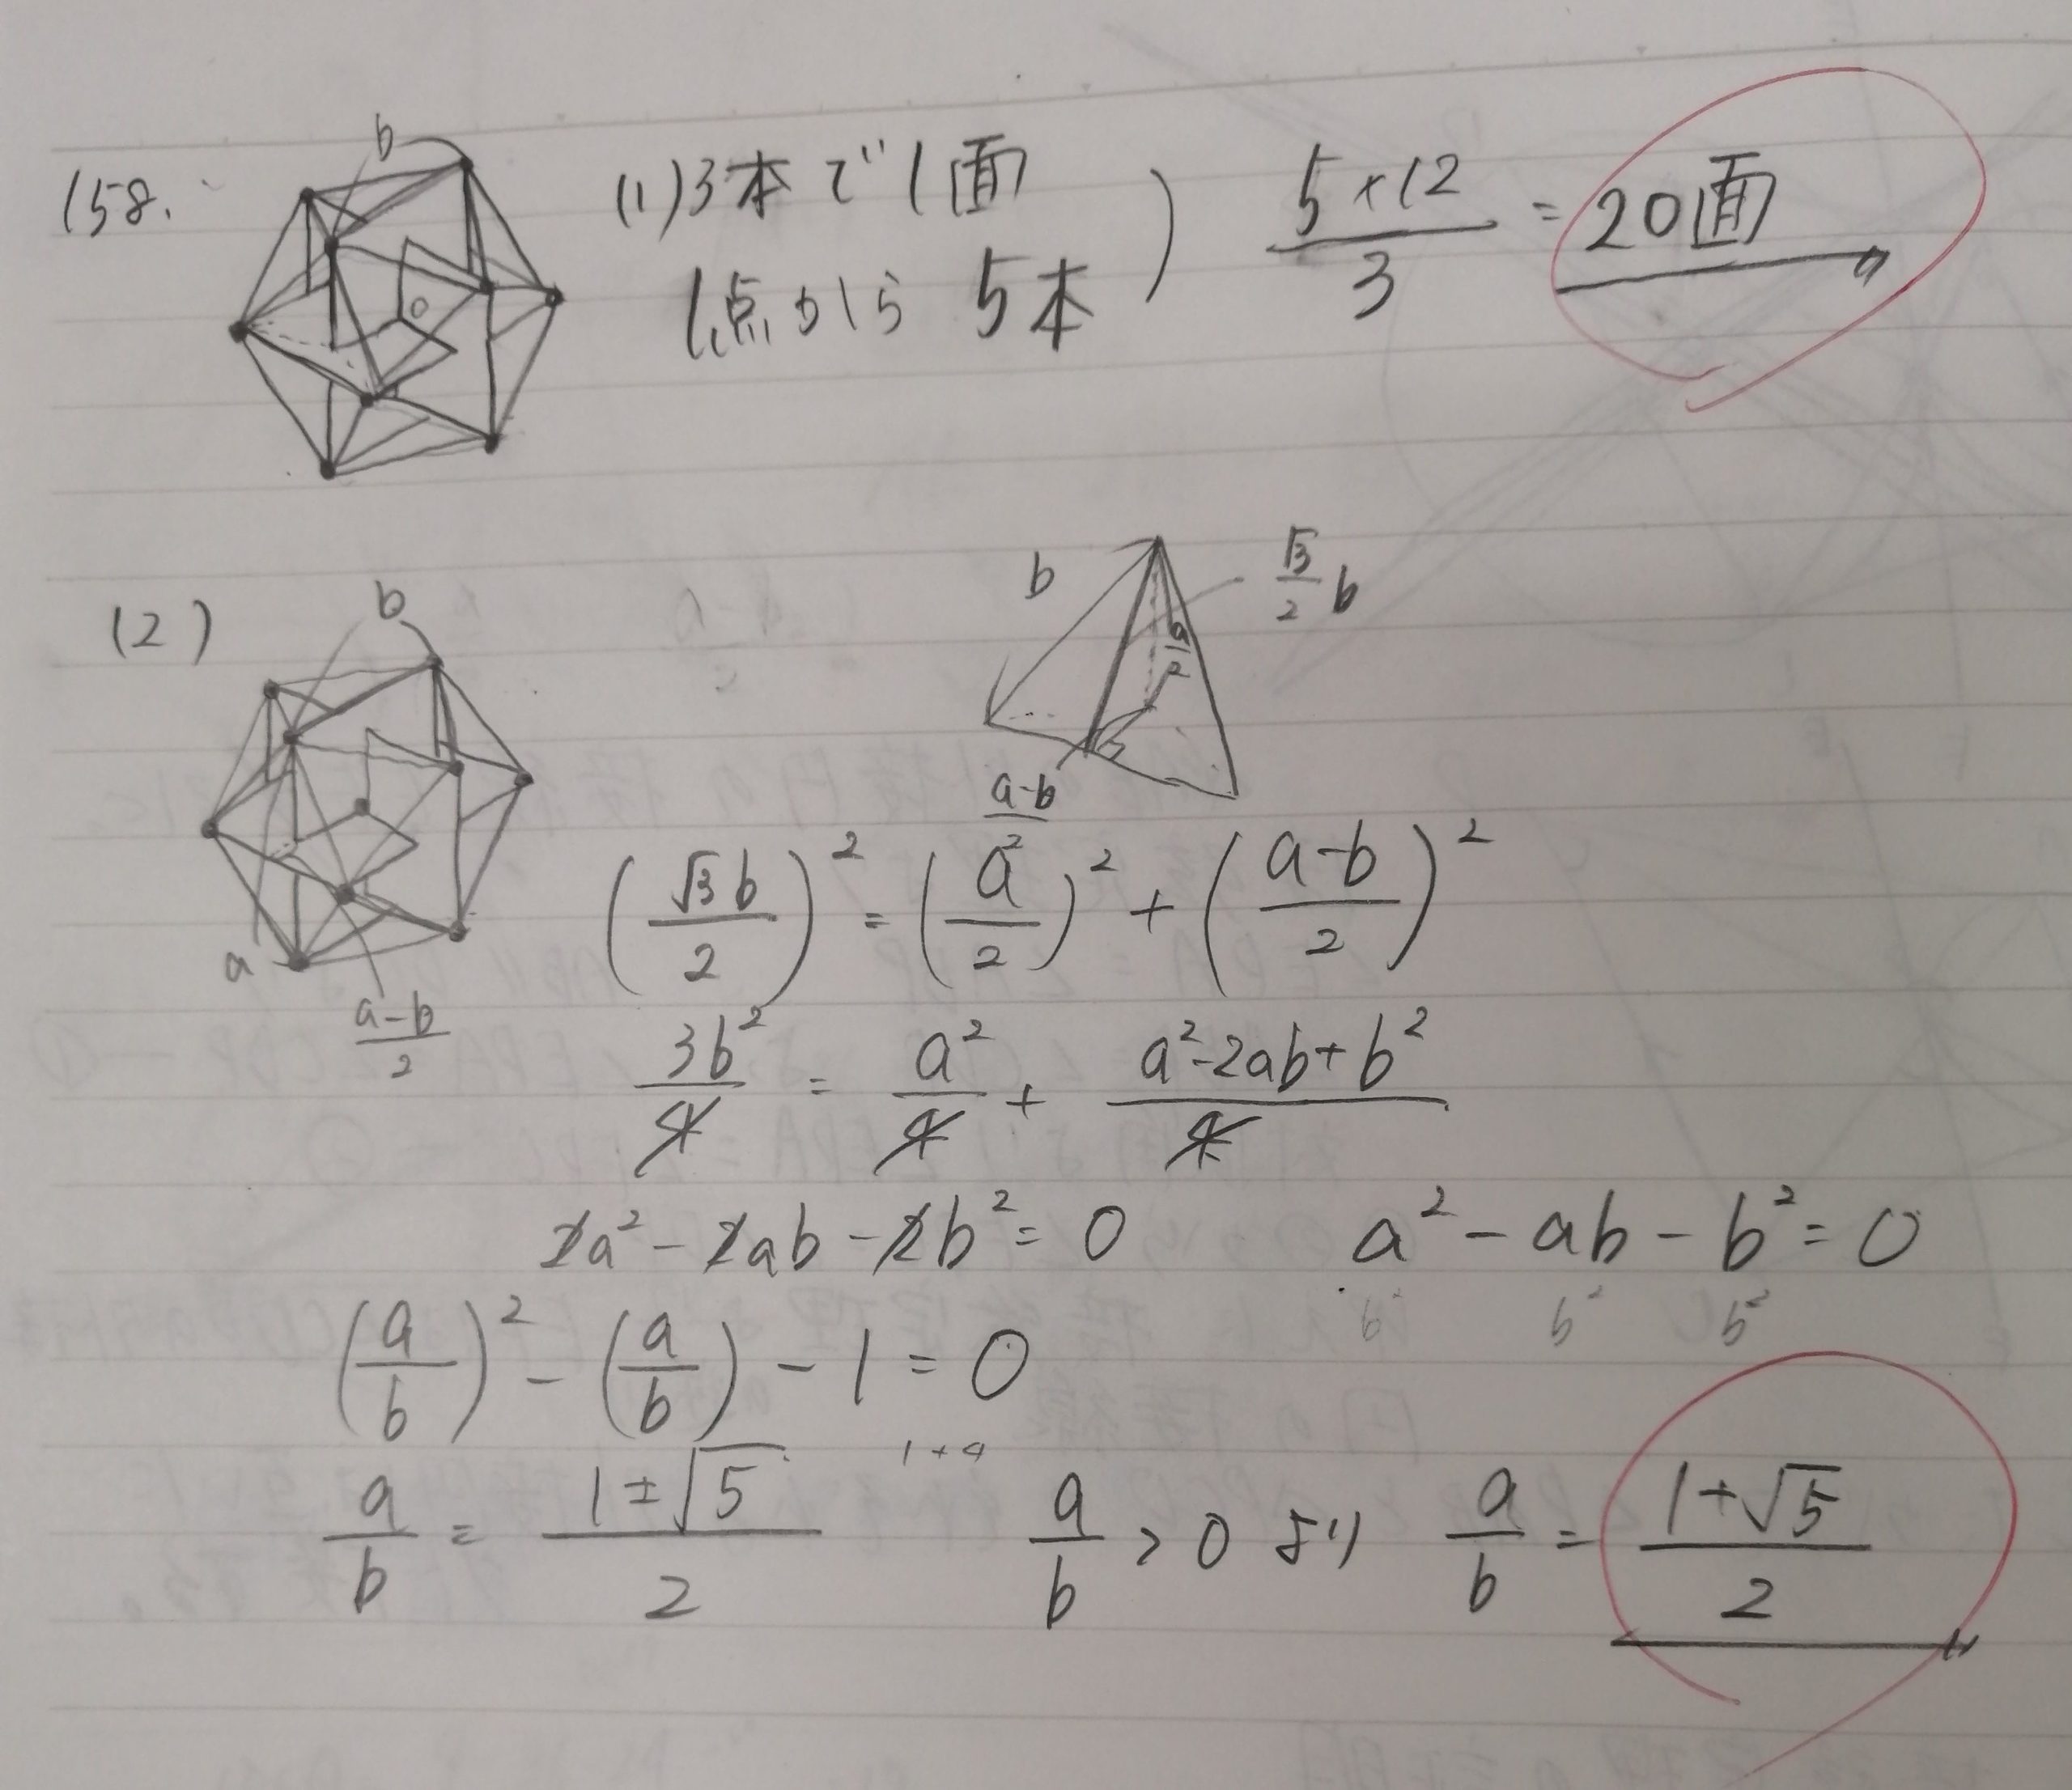 158.
b
(1) 3本で1面
1点から 5本
) 5×12/3 = 20面
o
(2)
b
b
√3/2 b
a/2
a-b/2
a
a-b/2
(√3b/2)² = (a/2)² + (a-b/2)²
3b²/4 = a²/4 + a²-2ab+b²/4
2a² - 2ab - 2b² = 0 a² - ab - b² = 0
b² b² b²
(a/b)² - (a/b) - 1 = 0
1+4
a/b = 1±√5/2 a/b > 0 より a/b = 1+√5/2